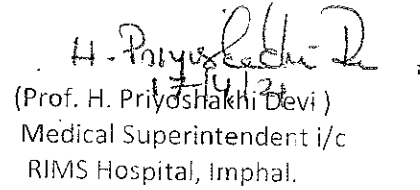 H. Priyoshakhi De
17/4/21
(Prof. H. Priyoshakhi Devi )
Medical Superintendent i/c
RIMS Hospital, Imphal.